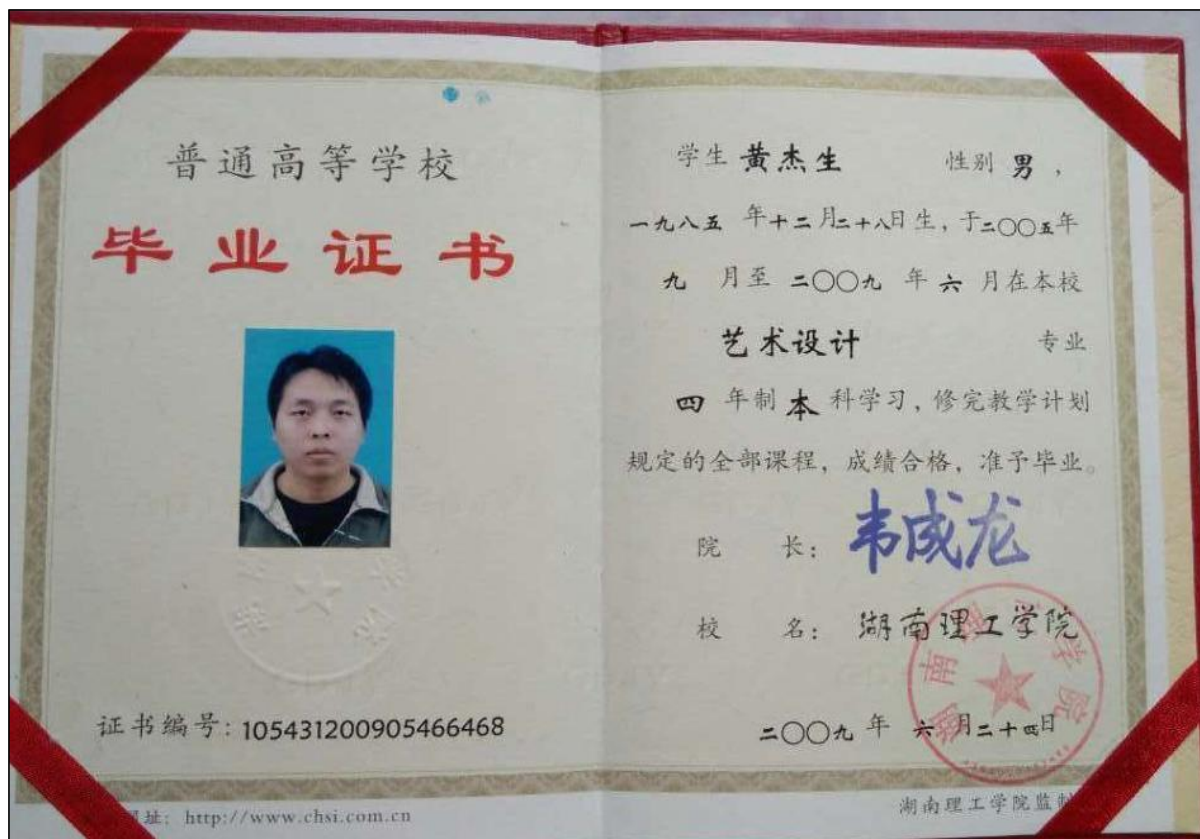 普通高等学校
毕业证书
证书编号：105431200905466468
址：http://www.chsi.com.cn
学生 黄杰生 性别 男，
一九八五 年十二月二十八日生，于二〇〇五年
九 月至 二〇〇九 年 六 月在本校
艺术设计 专业
四 年制 本 科学习，修完教学计划
规定的全部课程，成绩合格，准予毕业。
院 长：韦成龙
校 名：湖南理工学院
二〇〇九 年 六 月二十四日
湖南理工学院监制